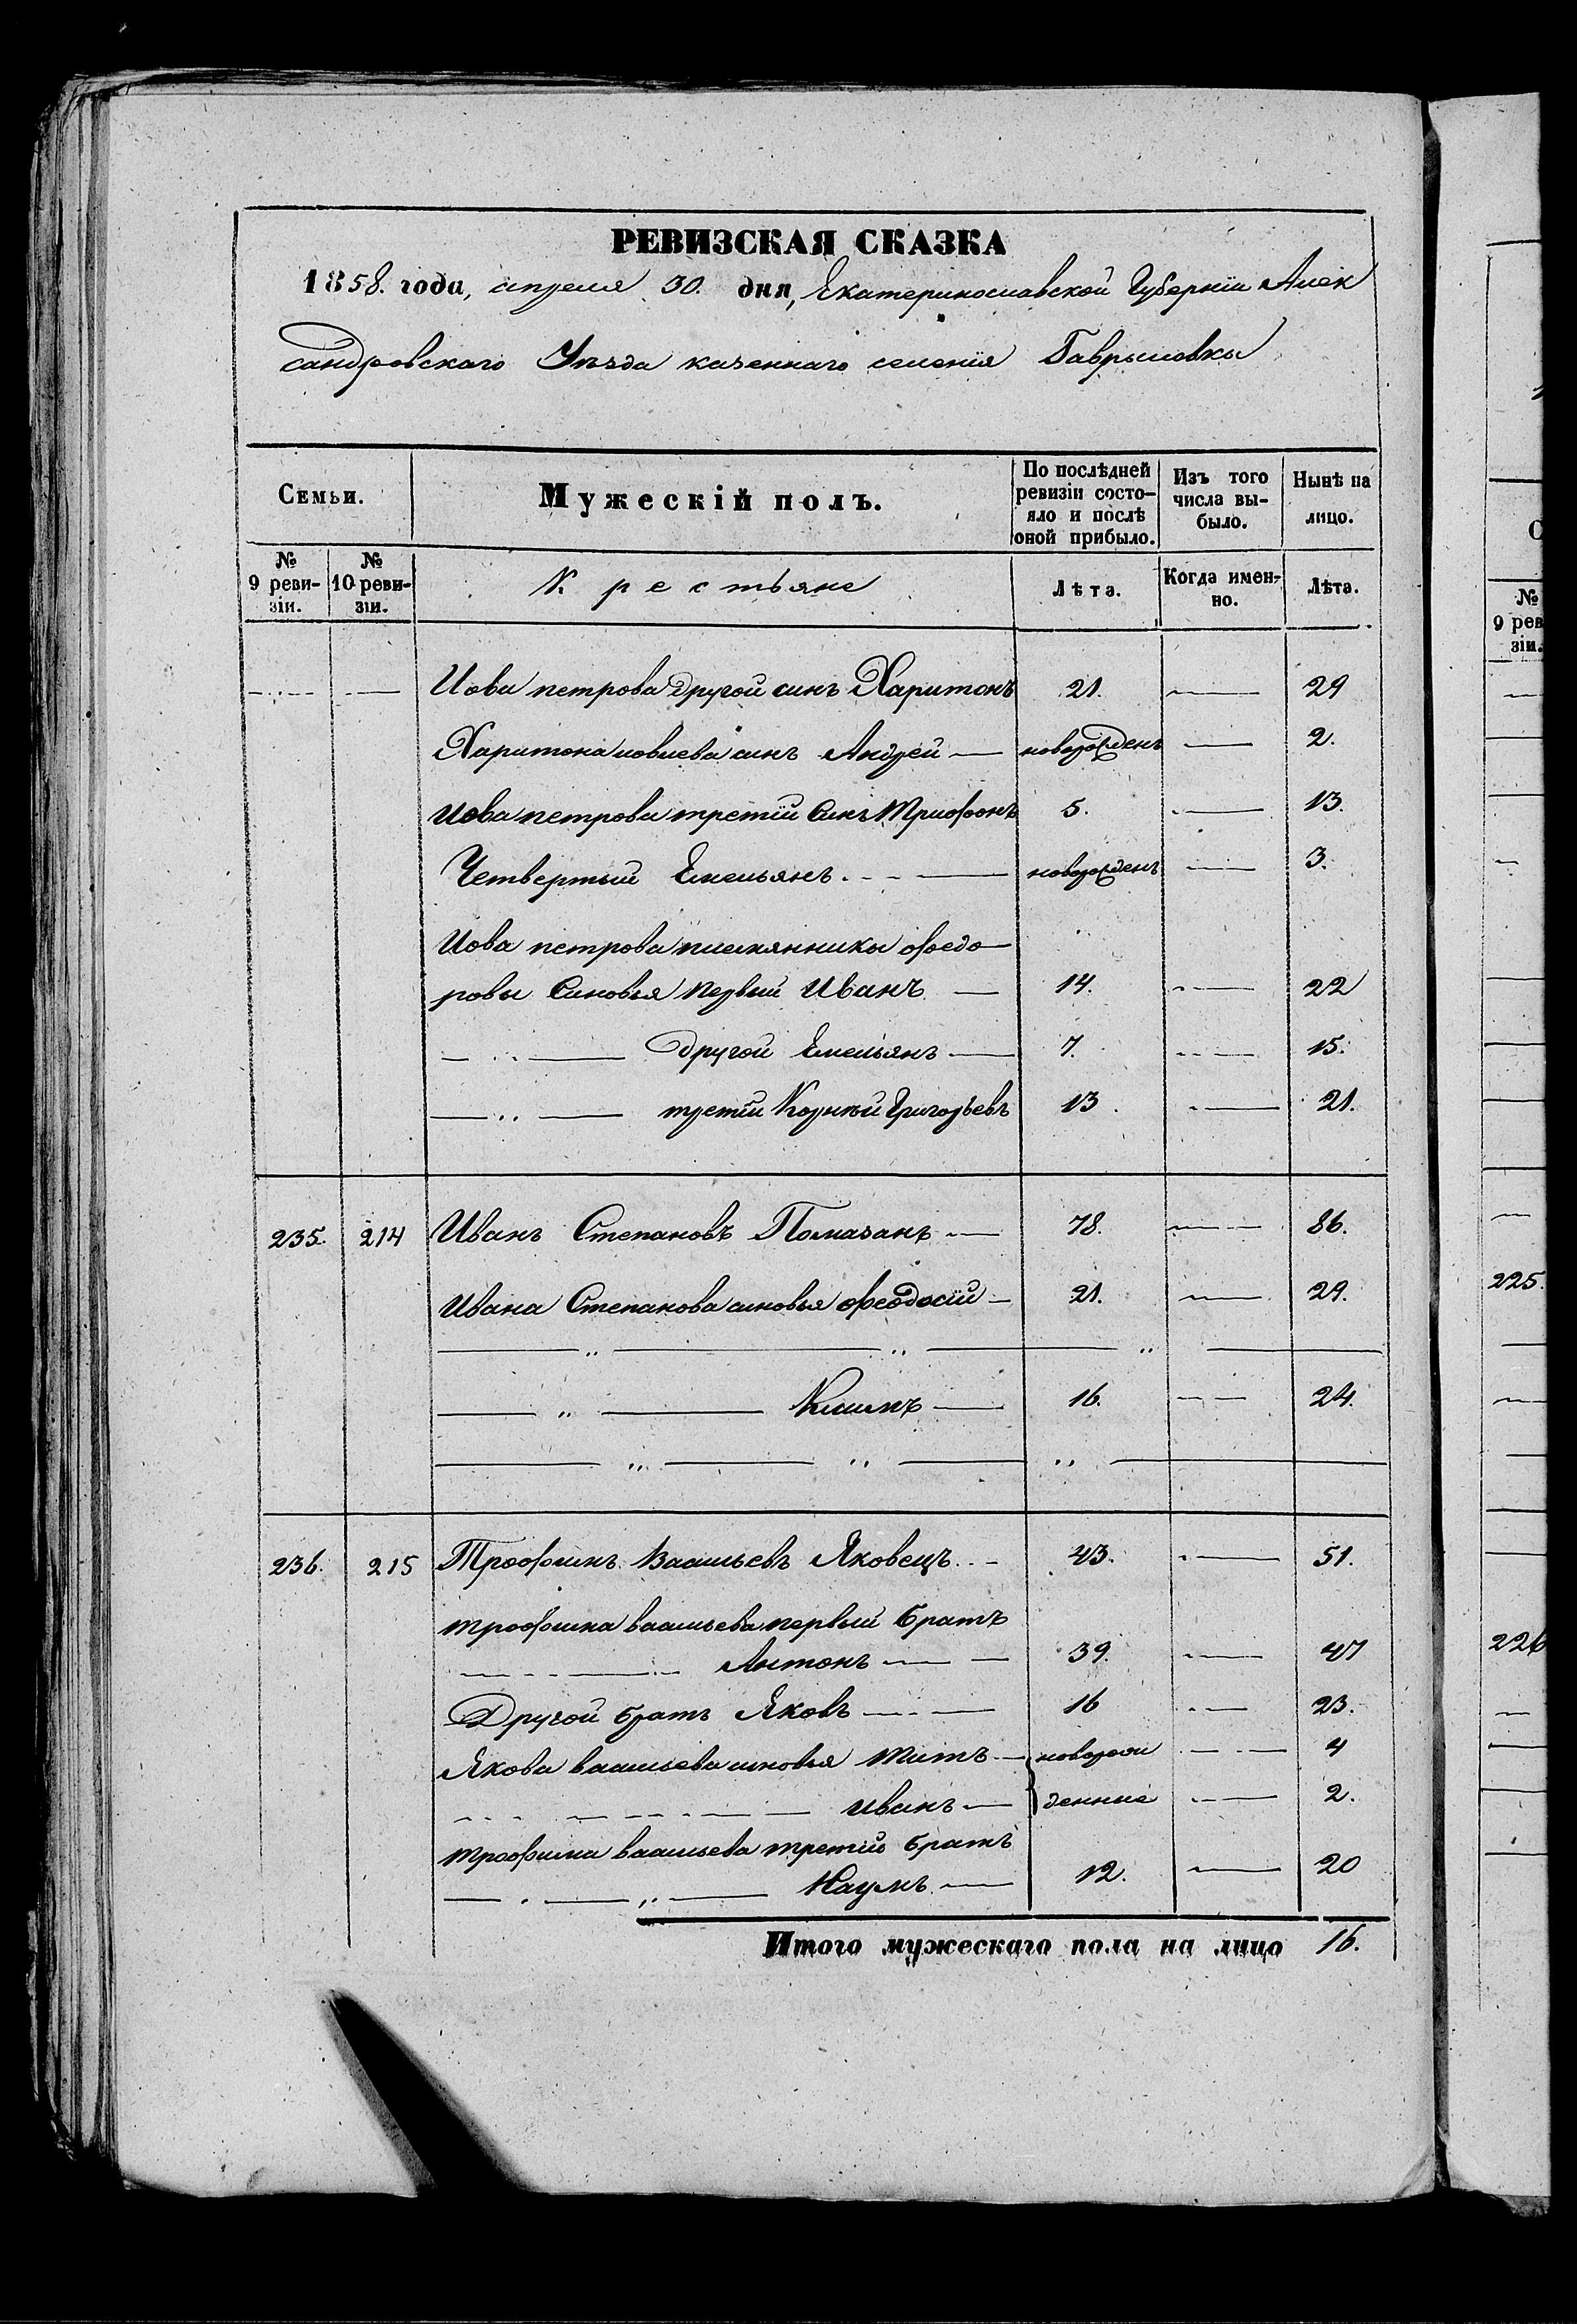 РЕВИЗСКАЯ СКАЗКА
1858. года, апреля 30. дня, Екатеринославской Губернiи Алек
сандровскаго Уѣзда казеннаго селенiя Гаврыловкы
Семьи. Мужескiй полъ. По послѣдней ревизiи состо-яло и послѣ оной прибыло. Изъ того числа вы-было. Нынѣ на лицо.
№ 9 реви-зiи. № 10 реви-зiи. Крестьяне Лѣта. Когда имен-но. Лѣта.
Иова петрова другой синъ Харитонъ 21. 29
Харитона иовлева синъ Андрей новорожденъ 2.
Иова петрова третiй Синъ Трифонъ 5. 13.
Четвертый Емельянъ новорожденъ 3.
Иова петрова племянникы федо
ровы Синовья первый Иванъ 14. 22
другой Емельянъ 7. 15.
третiй Корнѣй Григорьевъ 13. 21.
235. 214 Иванъ Степановъ Помазанъ 78. 86.
Ивана Степанова синовья Феодосiй 21. 29.
Климъ 16. 24.
236. 215 Трофимъ Васильевъ Яковецъ 43. 51.
трофима васильева первый братъ
Антонъ 39. 47
Другой братъ Яковъ 16 23.
Якова васильева синовья Титъ новорож 4
иванъ денние 2.
трофима васильева третiй братъ
Наумъ 12. 20
Итого мужескаго пола на лицо 16.
№
9 рев
зiи.
225.
226